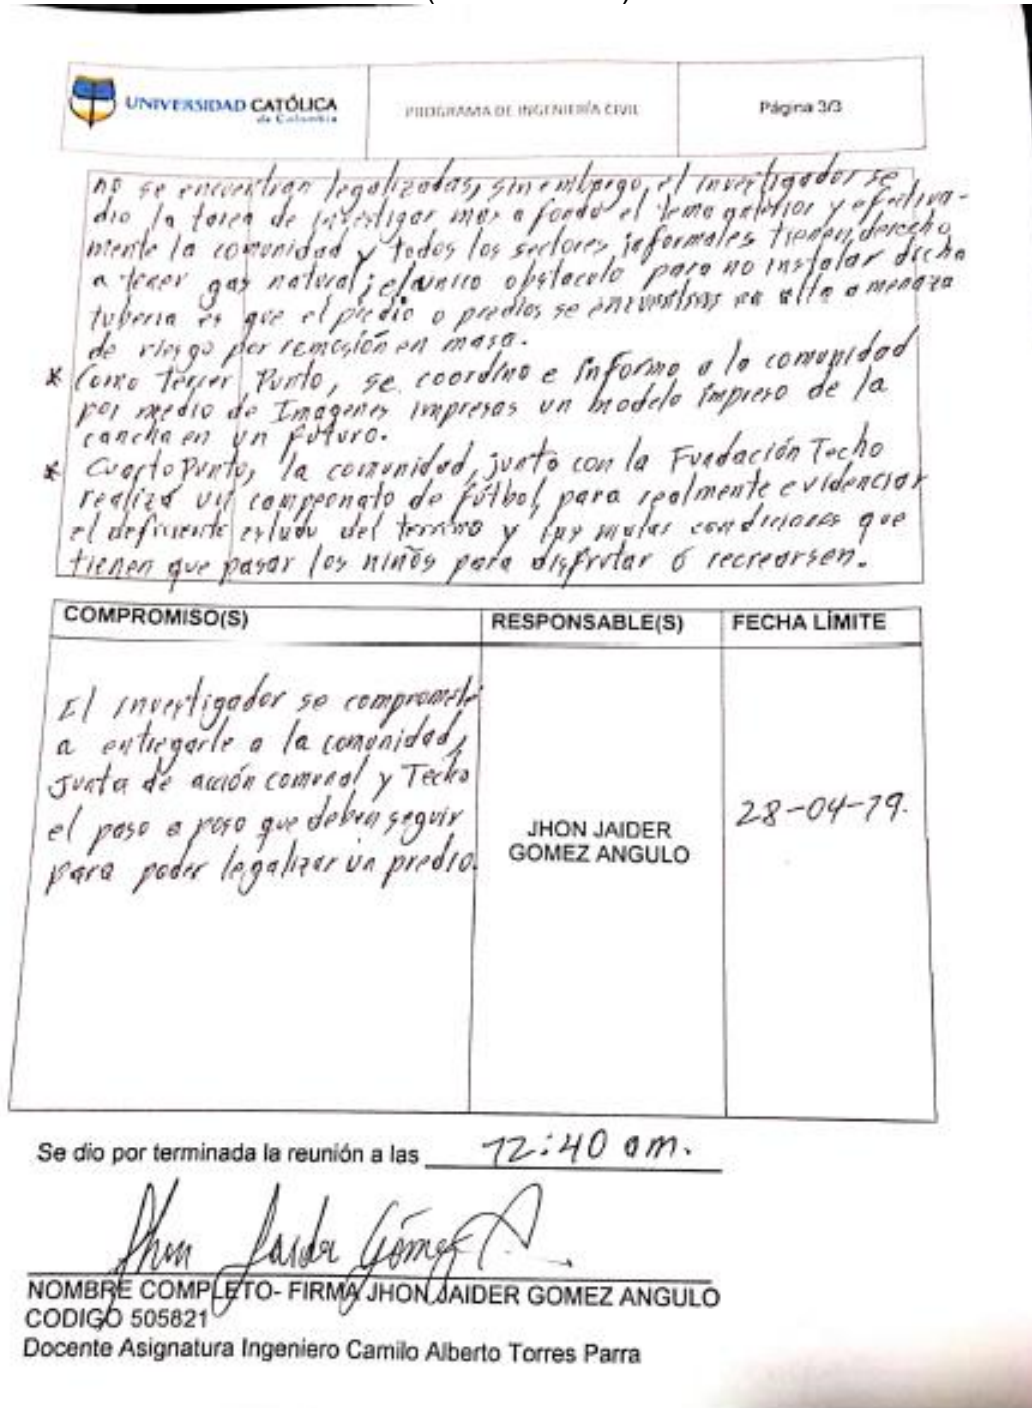 UNIVERSIDAD CATÓLICA
de Colombia
PROGRAMA DE INGENIERÍA CIVIL
Página 3/3
no se encuentran legalizadas, sin embargo, el investigador se
dio la tarea de investigar mas a fondo el tema anterior y efectiva-
mente la comunidad y todos los sectores informales tienen derecho
a tener gas natural; el unico obstaculo para no instalar dicha
tuberia es que el predio o predios se encuentran en alta amenaza
de riesgo por remosión en masa.
* Como Tercer Punto, se coordino e informo a la comunidad
por medio de Imagenes impresas un modelo impreso de la
cancha en un futuro.
* Cuarto Punto, la comunidad, junto con la Fundación Techo
realizó un campeonato de fútbol, para realmente evidenciar
el deficiente estado del terreno y las malas condiciones que
tienen que pasar los niños para disfrutar ó recrearsen.
COMPROMISO(S)
RESPONSABLE(S)
FECHA LÍMITE
El investigador se compromete
a entregarle a la comunidad,
Junta de acción comunal y Techo
el paso a paso que deben seguir
para poder legalizar un predio.
JHON JAIDER
GOMEZ ANGULO
28-04-19.
Se dio por terminada la reunión a las 12:40 am.
Jhon Jaider Gómez A.
NOMBRE COMPLETO- FIRMA JHON JAIDER GOMEZ ANGULO
CODIGO 505821
Docente Asignatura Ingeniero Camilo Alberto Torres Parra